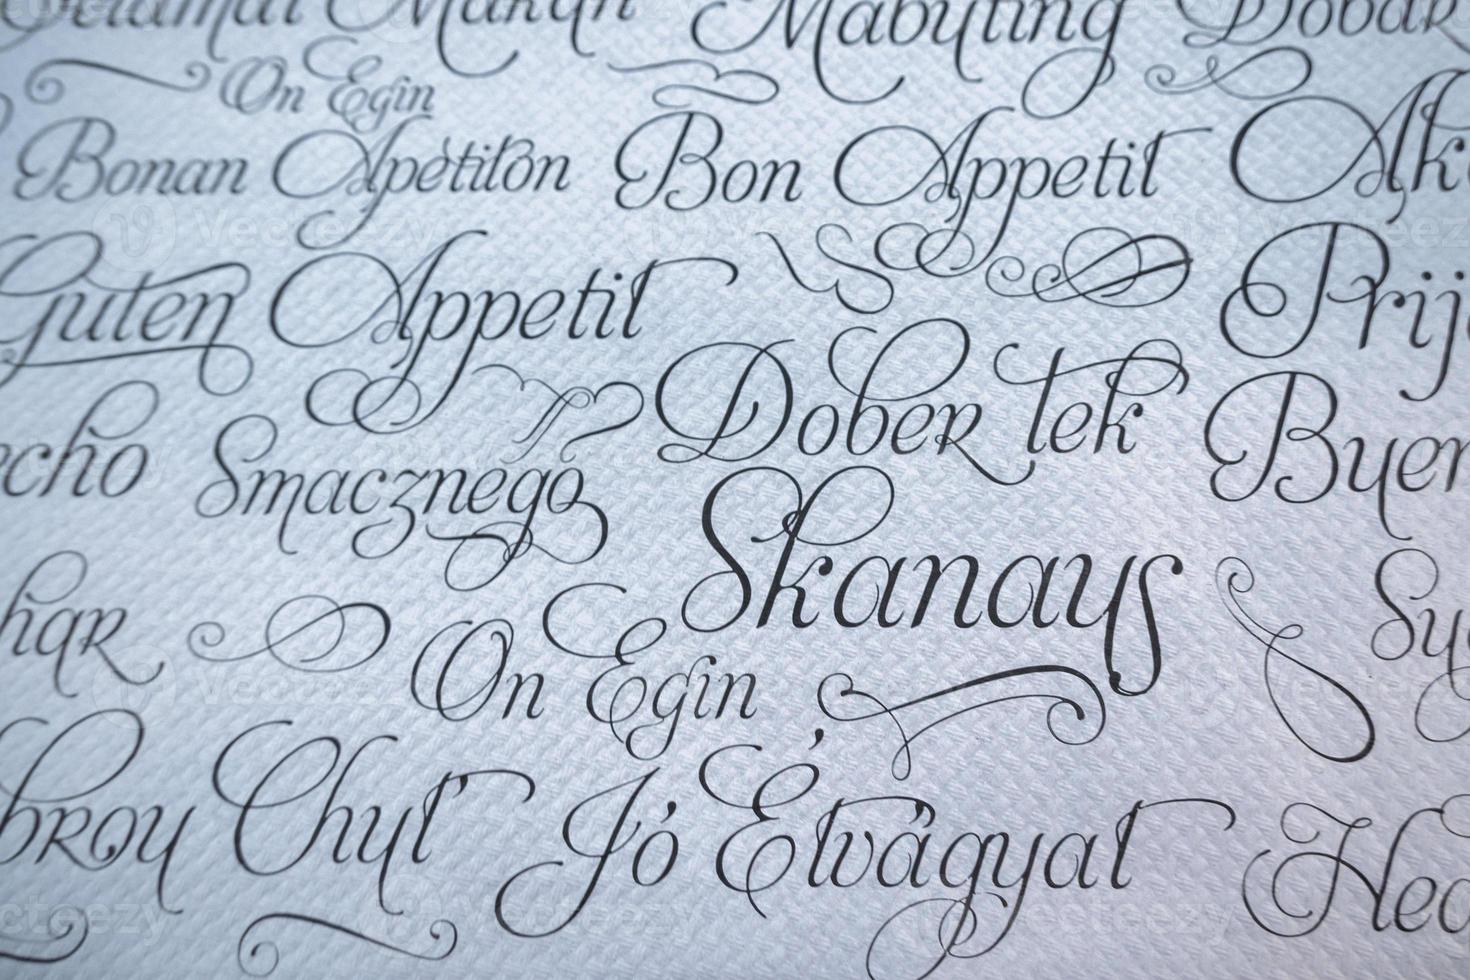 Selamat Makan Mabuting Dobar
On Egin
Bonan Apetiton Bon Appetit
Guten Appetit Prij
Dober tek
echo Smacznego Buen
Skanaus
On Egin
brou Chuť Jó Étvágyat
Vecteezy